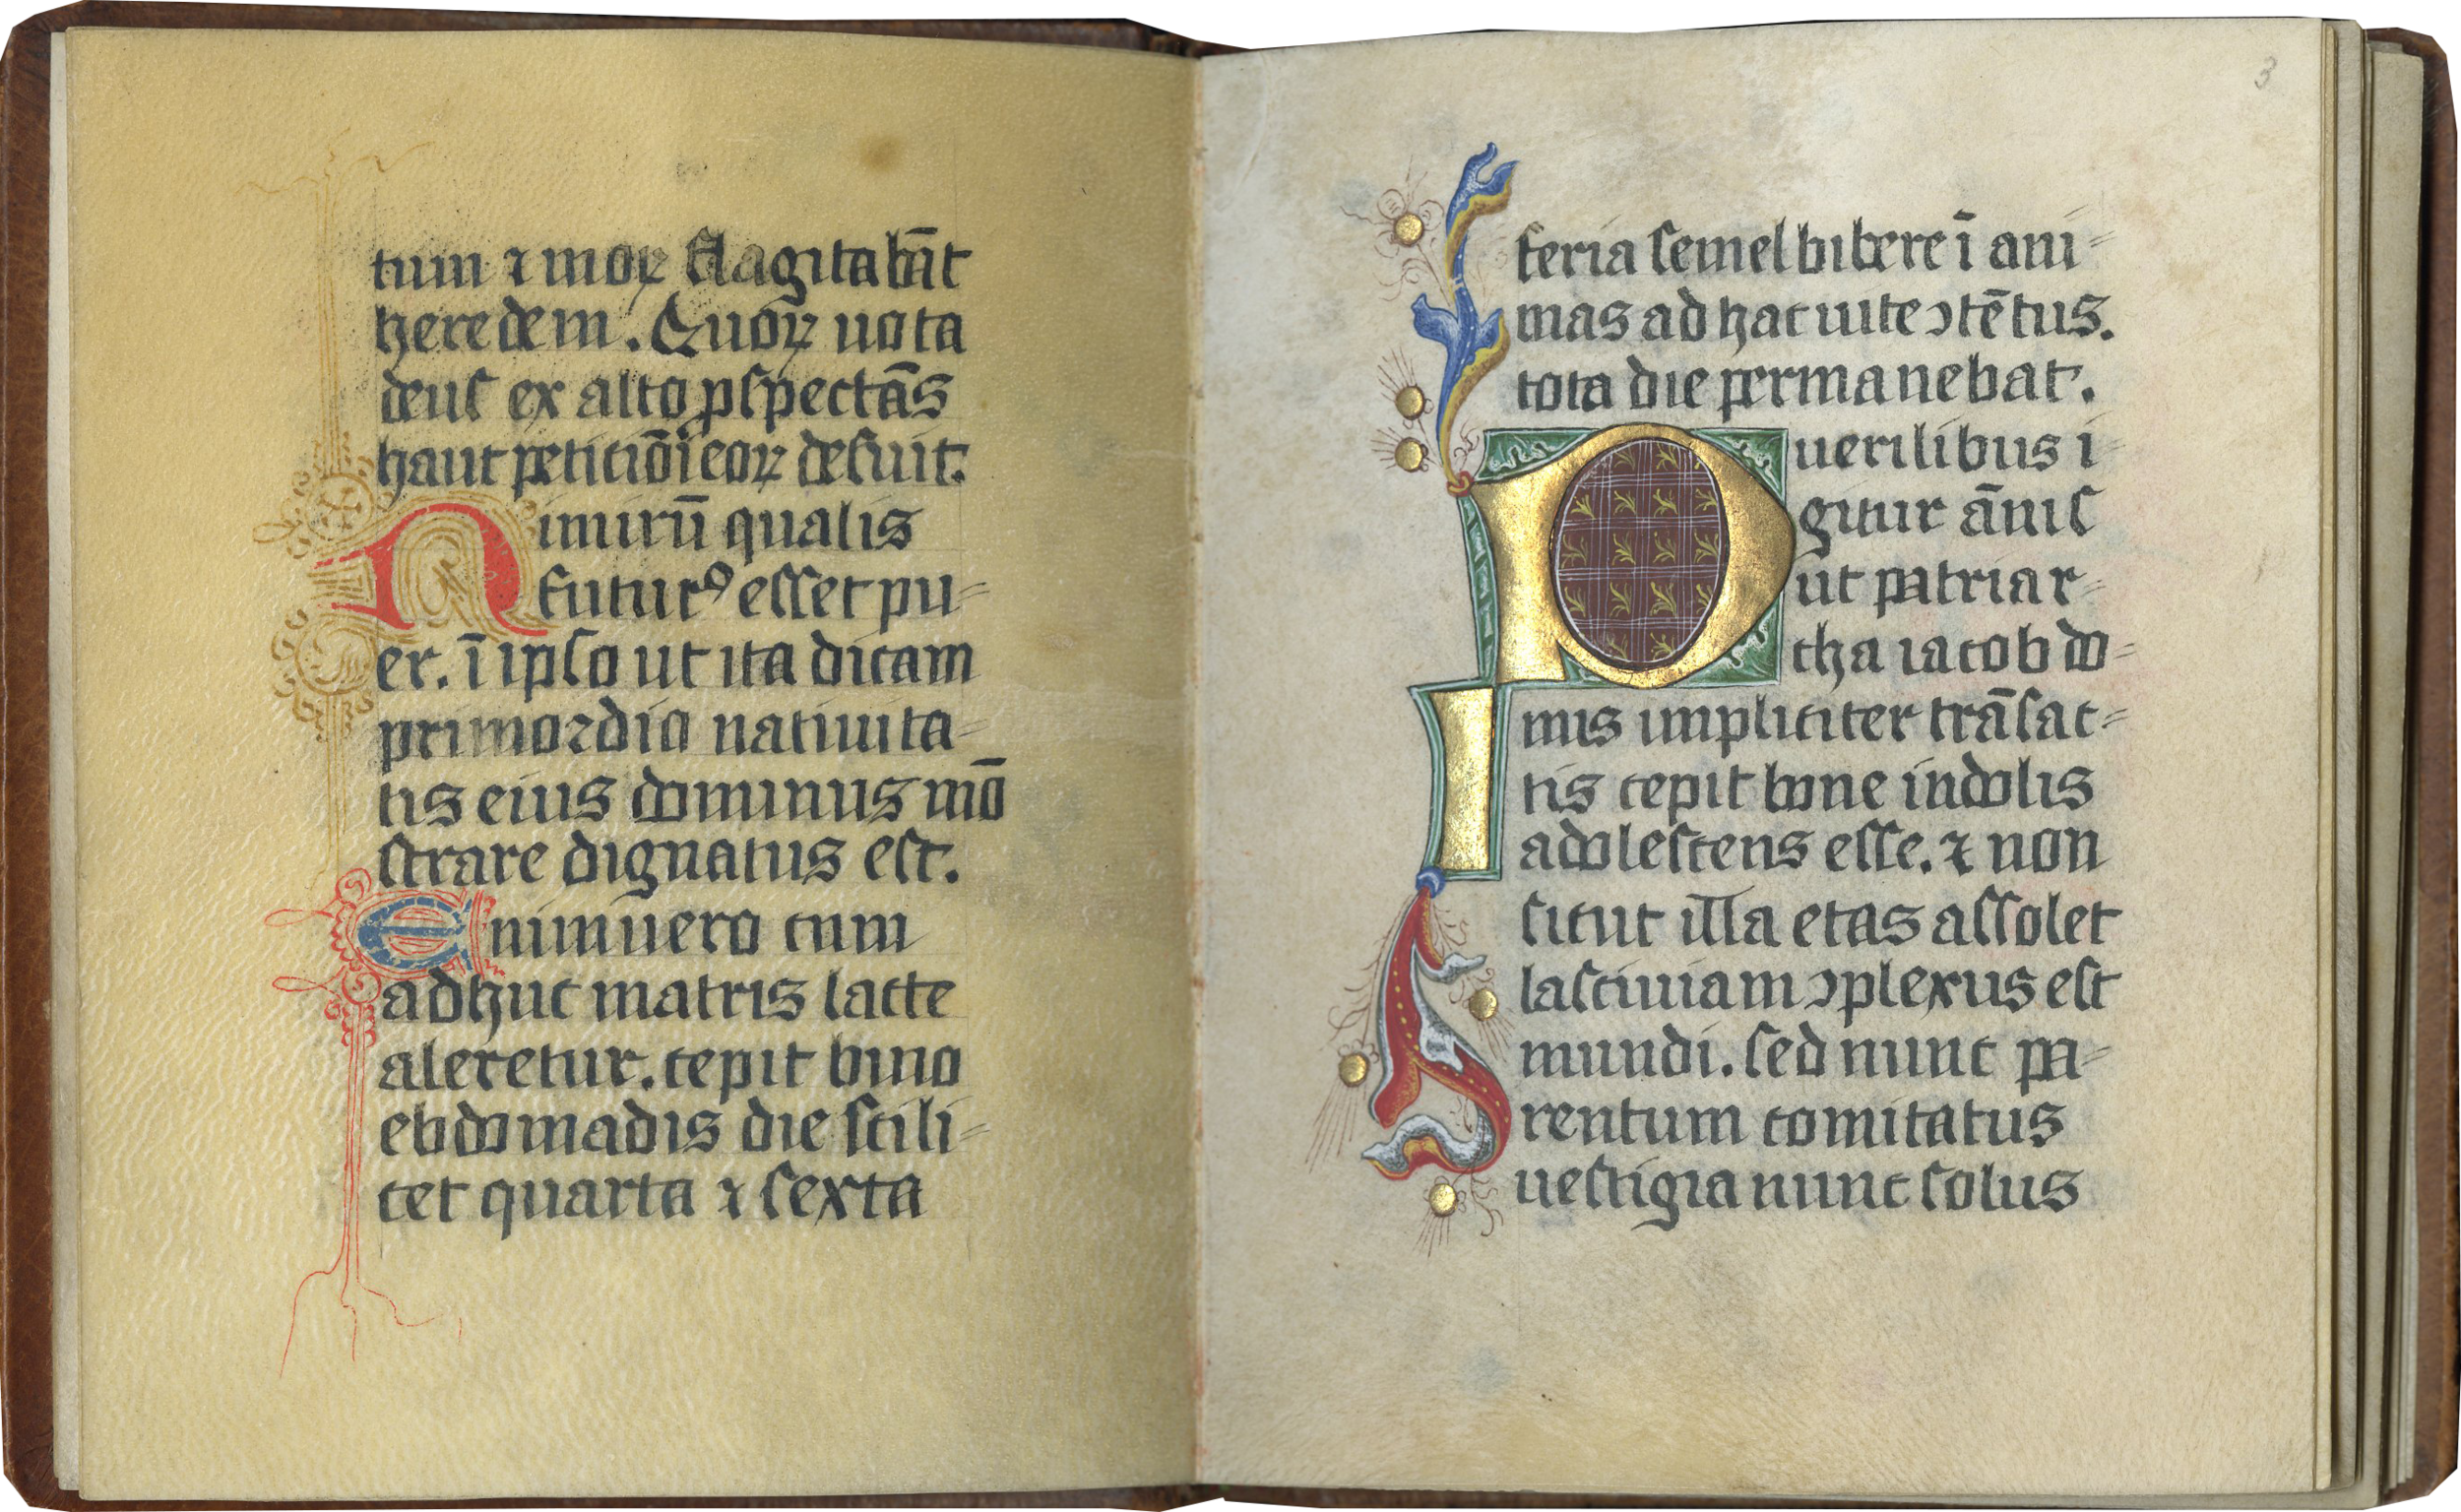 tum ⁊ moꝝ flagitabāt
heredem. Quoꝝ uota
deus ex alto ꝓspectās
haut peticiōi eoꝝ defuit.
Nimirū qualis
futurꝰ esset pu=
er. ī ipso ut ita dicam
primordio natiuita=
tis eius dominus mō
strare dignatus est.
Enimuero cum
adhuc matris lacte
aleretur. cepit bino
ebdomadis die scili=
cet quarta ⁊ sexta
3
feria semel bibere ī ani=
mas ad hac uite ↄtētus.
tota die permanebat.
Puerilibus i=
gitur ānis
ut patriar=
cha iacob do=
mis impliciter trāsac=
tis cepit bone indolis
adolescens esse. ⁊ non
sicut illa etas assolet
lasciuiam ↄplexus est
mundi. sed nunc pa=
rentum comitatus
uestigia nunc solus